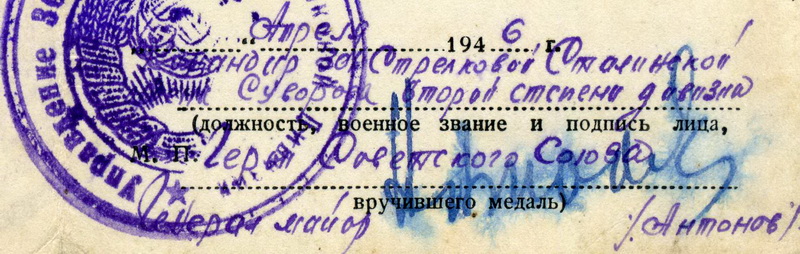 " Апреля 1946 г.
Командир Стрелковой Сталинской
Суворова второй степени дивизии
(должность, военное звание и подпись лица,
М. П. Герой Советского Союза
вручившего медаль)
Генерал майор /Антонов/
Управление